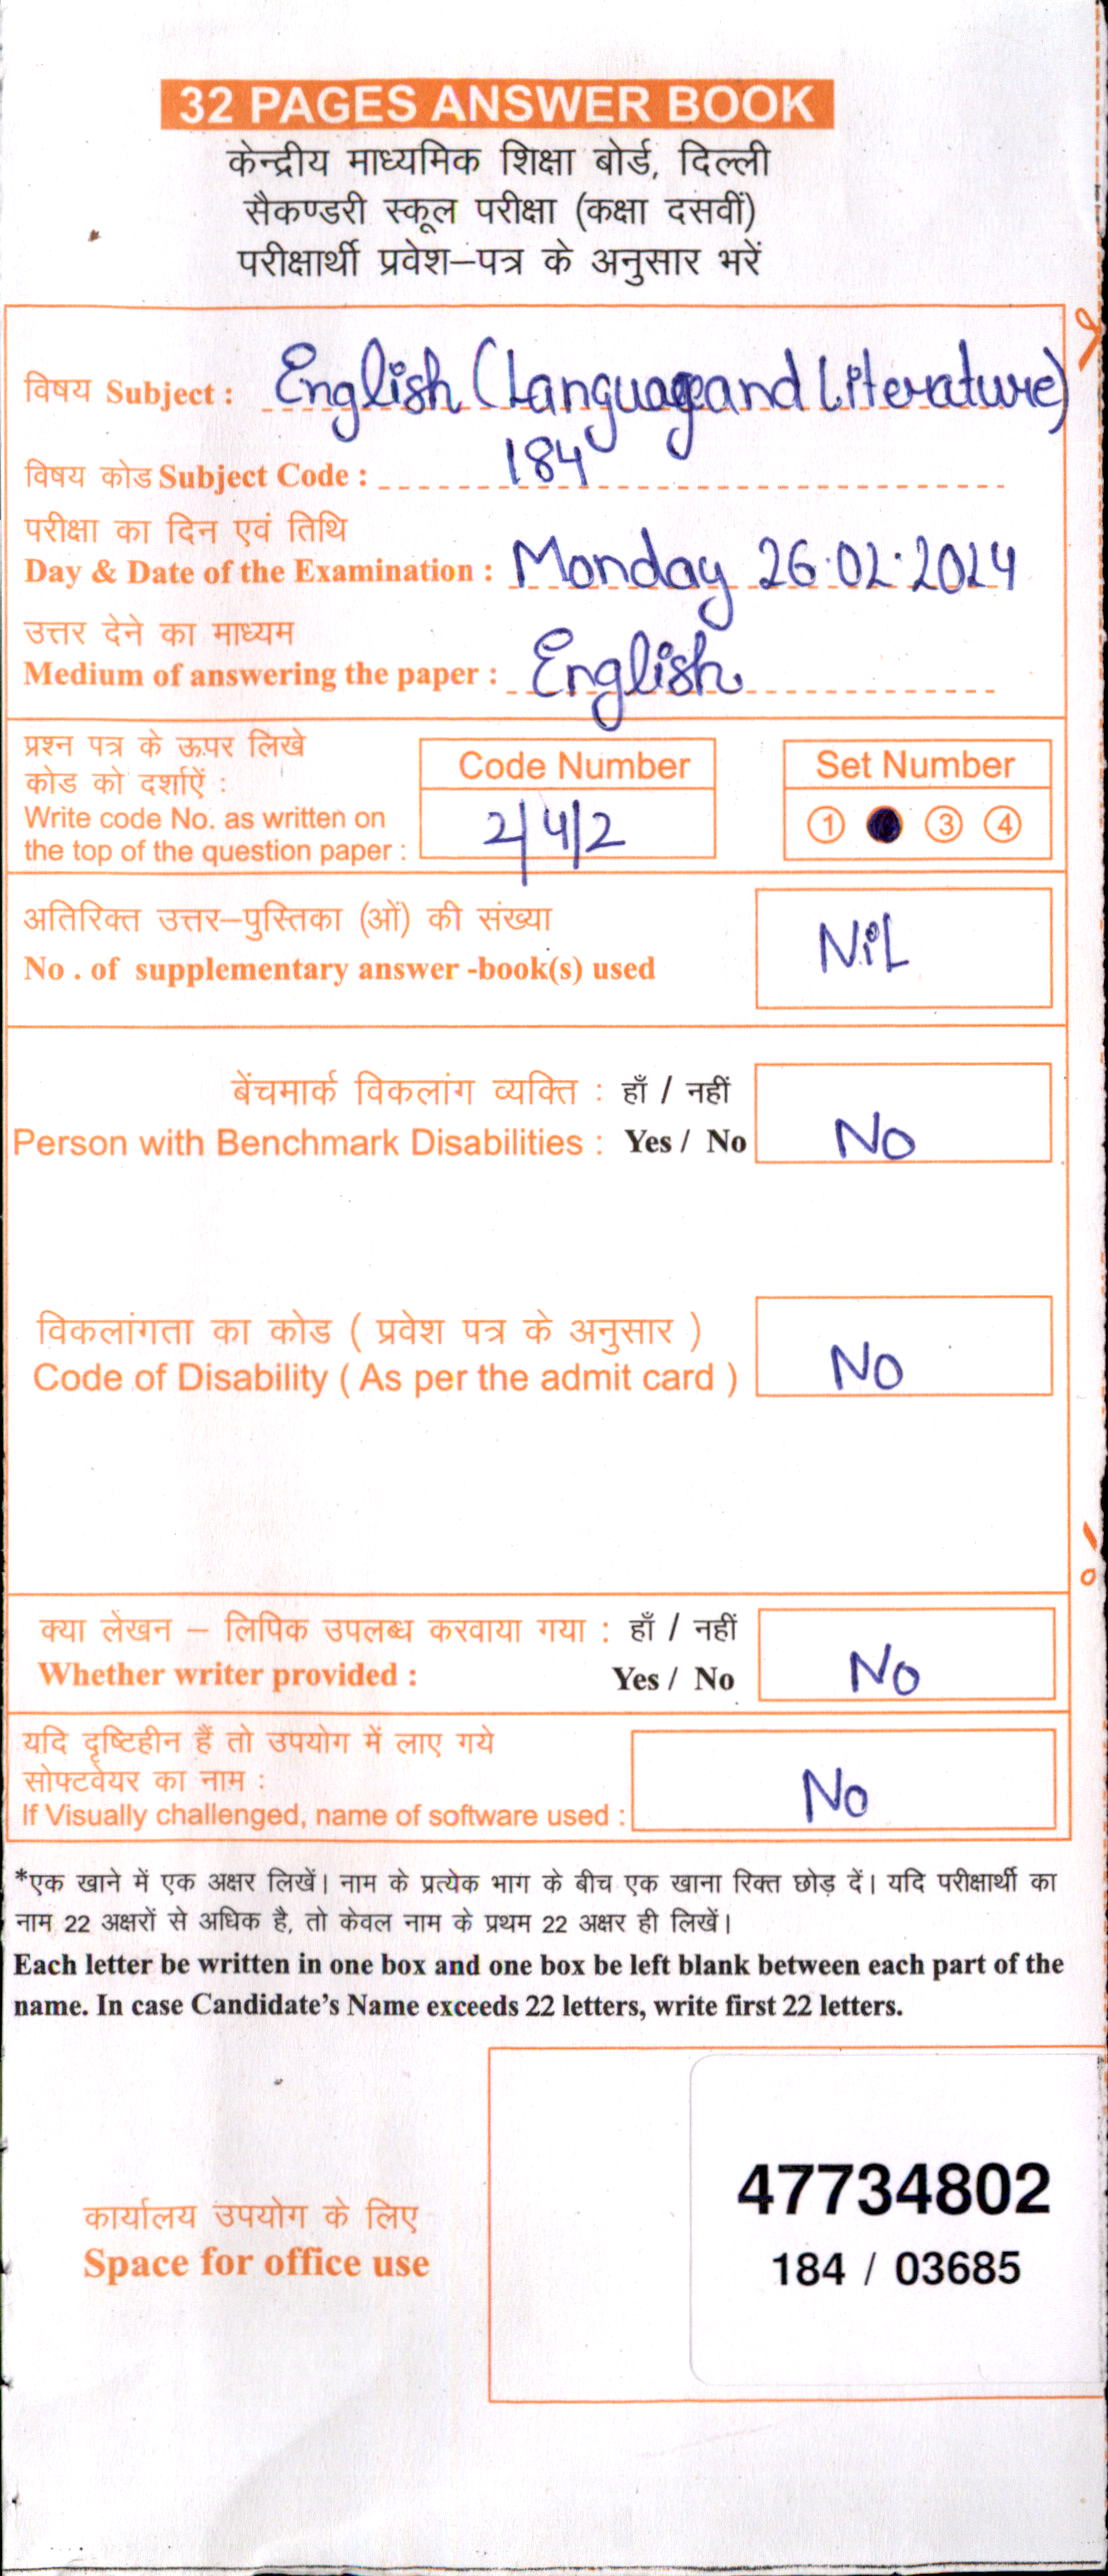 32 PAGES ANSWER BOOK
केन्द्रीय माध्यमिक शिक्षा बोर्ड, दिल्ली
सैकण्डरी स्कूल परीक्षा (कक्षा दसवीं)
परीक्षार्थी प्रवेश–पत्र के अनुसार भरें
विषय Subject : English (Language and Literature)
विषय कोड Subject Code : 184
परीक्षा का दिन एवं तिथि
Day & Date of the Examination : Monday 26.02.2024
उत्तर देने का माध्यम
Medium of answering the paper : English
प्रश्न पत्र के ऊपर लिखे
कोड को दर्शाऐं :
Write code No. as written on
the top of the question paper :
Code Number
2/4/2
Set Number
1 3 4
अतिरिक्त उत्तर–पुस्तिका (ओं) की संख्या
No . of supplementary answer -book(s) used
NiL
बेंचमार्क विकलांग व्यक्ति : हाँ / नहीं
Person with Benchmark Disabilities : Yes / No
No
विकलांगता का कोड ( प्रवेश पत्र के अनुसार )
Code of Disability ( As per the admit card )
No
क्या लेखन – लिपिक उपलब्ध करवाया गया : हाँ / नहीं
Whether writer provided : Yes / No
No
यदि दृष्टिहीन हैं तो उपयोग में लाए गये
सोफ्टवेयर का नाम :
If Visually challenged, name of software used :
No
*एक खाने में एक अक्षर लिखें। नाम के प्रत्येक भाग के बीच एक खाना रिक्त छोड़ दें। यदि परीक्षार्थी का
नाम 22 अक्षरों से अधिक है, तो केवल नाम के प्रथम 22 अक्षर ही लिखें।
Each letter be written in one box and one box be left blank between each part of the
name. In case Candidate's Name exceeds 22 letters, write first 22 letters.
कार्यालय उपयोग के लिए
Space for office use
47734802
184 / 03685